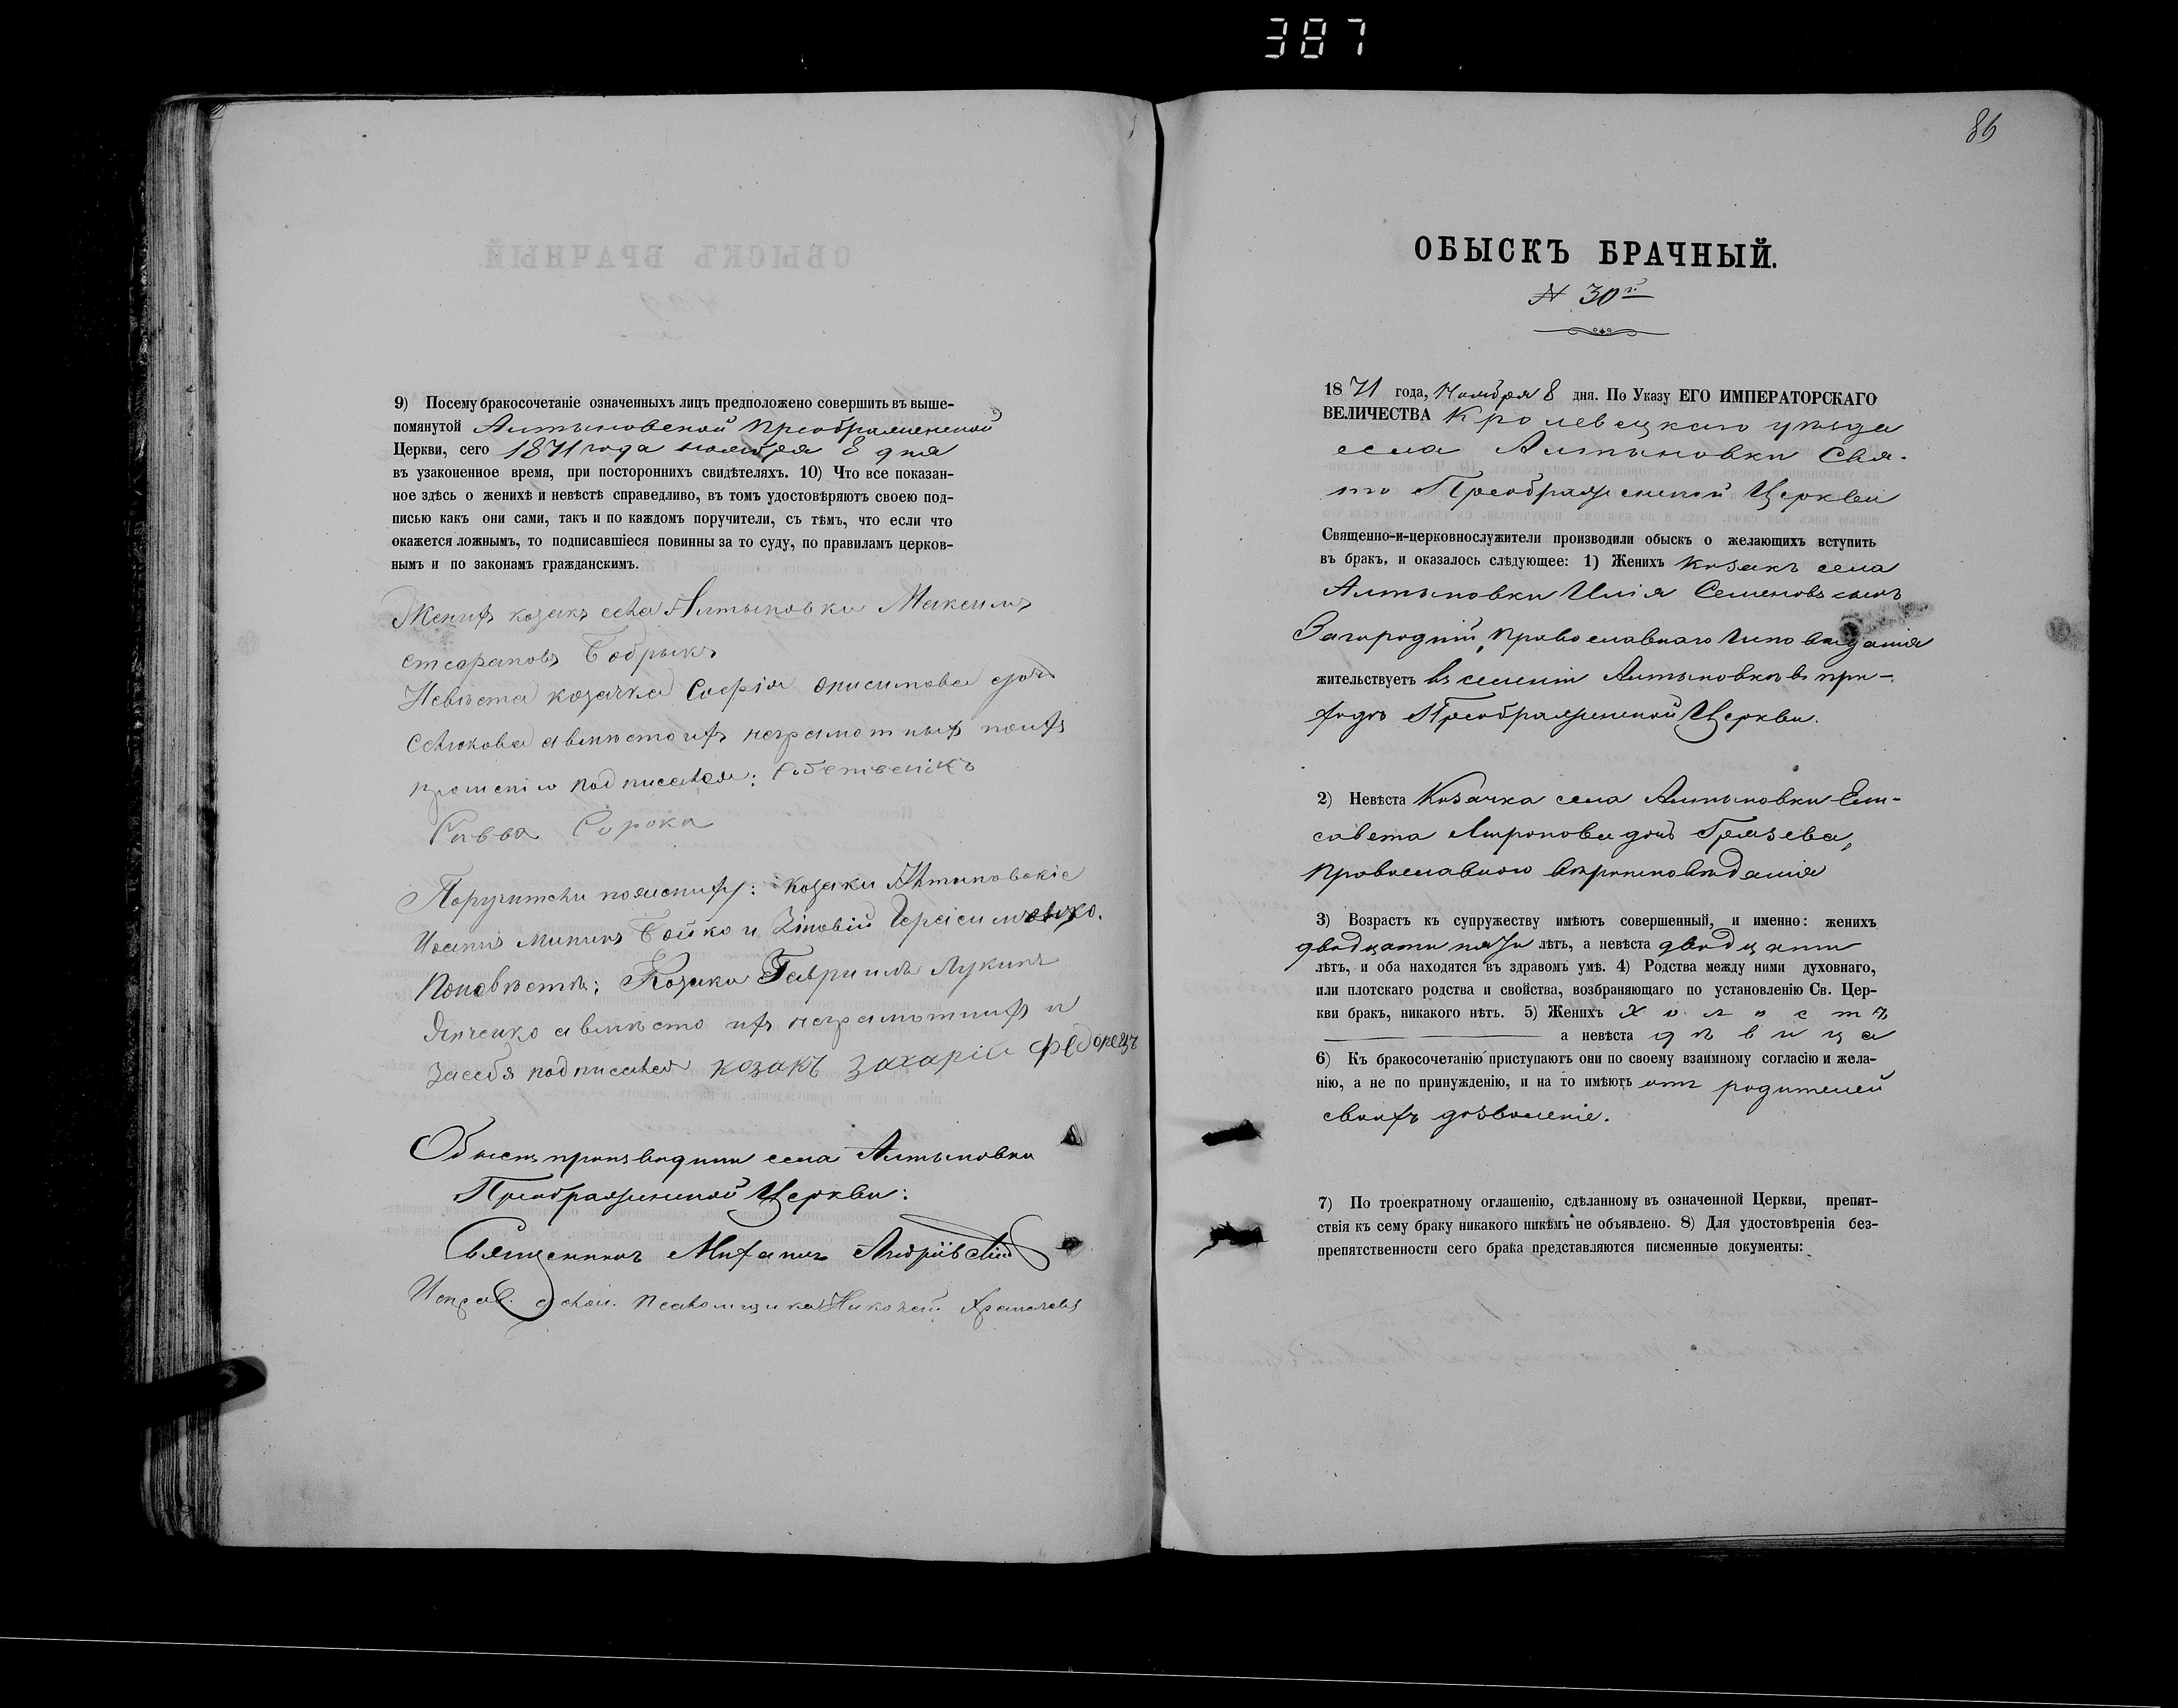 387
9) Посему бракосочетаніе означенныхъ лицъ предположено совершить въ выше-
помянутой Алтыновской Преображенской
Церкви, сего 1871 года ноября 8 дня
въ узаконенное время, при постороннихъ свидѣтеляхъ. 10) Что все показан-
ное здѣсь о женихѣ и невѣстѣ справедливо, въ томъ удостовѣряютъ своею под-
писью какъ они сами, такъ и по каждомъ поручители, съ тѣмъ, что если что
окажется ложнымъ, то подписавшіеся повинны за то суду, по правиламъ церков-
нымъ и по законамъ гражданскимъ.
Женихъ козакъ села Алтыновки Максимъ
Бобрыкъ
Невѣста козачка Софія Онисимова дочь
а вмѣсто ихъ неграмотныхъ поихъ
прошенію подписался:
Савва Сорока
Поручители по жениху: козаки Алтыновскіе
Іоаннъ Мининъ Бойко и Зіновій Герасименко.
По невѣстѣ: Козаки Гавріилъ Лукинъ
а вмѣсто ихъ неграмотныхъ и
за себя подписался козакъ Захарій Федорецъ
Обыскъ производили села Алтыновки
Преображенской Церкви:
Священникъ Андріевскій
Исправ. должн. Псаломщика Николай
86
ОБЫСКЪ БРАЧНЫЙ.
N 30й
1871 года, Ноября 8 дня. По Указу ЕГО ИМПЕРАТОРСКАГО
ВЕЛИЧЕСТВА Кролевецкаго уѣзда
села Алтыновки Свя-
то Преображенской Церкви
Священно-и-церковнослужители производили обыскъ о желающихъ вступить
въ бракъ, и оказалось слѣдующее: 1) Женихъ Козакъ села
Алтыновки Илія Семеновъ сынъ
Загородній, православнаго исповѣданія
жительствуетъ въ селеніи Алтыновкѣ въ при-
ходѣ Преображенской Церкви.
2) Невѣста Козачка села Алтыновки Ели-
савета Миронова дочь
Православнаго вѣроисповѣданія
3) Возрастъ къ супружеству имѣютъ совершенный, и именно: женихъ
двадцати пяти лѣтъ, а невѣста двадцати
лѣтъ, и оба находятся въ здравомъ умѣ. 4) Родства между ними духовнаго,
или плотскаго родства и свойства, возбраняющаго по установленію Св. Цер-
кви бракъ, никакого нѣтъ. 5) Женихъ холостъ
а невѣста дѣвица
6) Къ бракосочетанію приступаютъ они по своему взаимному согласію и жела-
нію, а не по принужденію, и на то имѣютъ отъ родителей
своихъ дозволеніе.
7) По троекратному оглашенію, сдѣланному въ означенной Церкви, препят-
ствія къ сему браку никакого никѣмъ не объявлено. 8) Для удостовѣренія без-
препятственности сего брака представляются писменные документы: